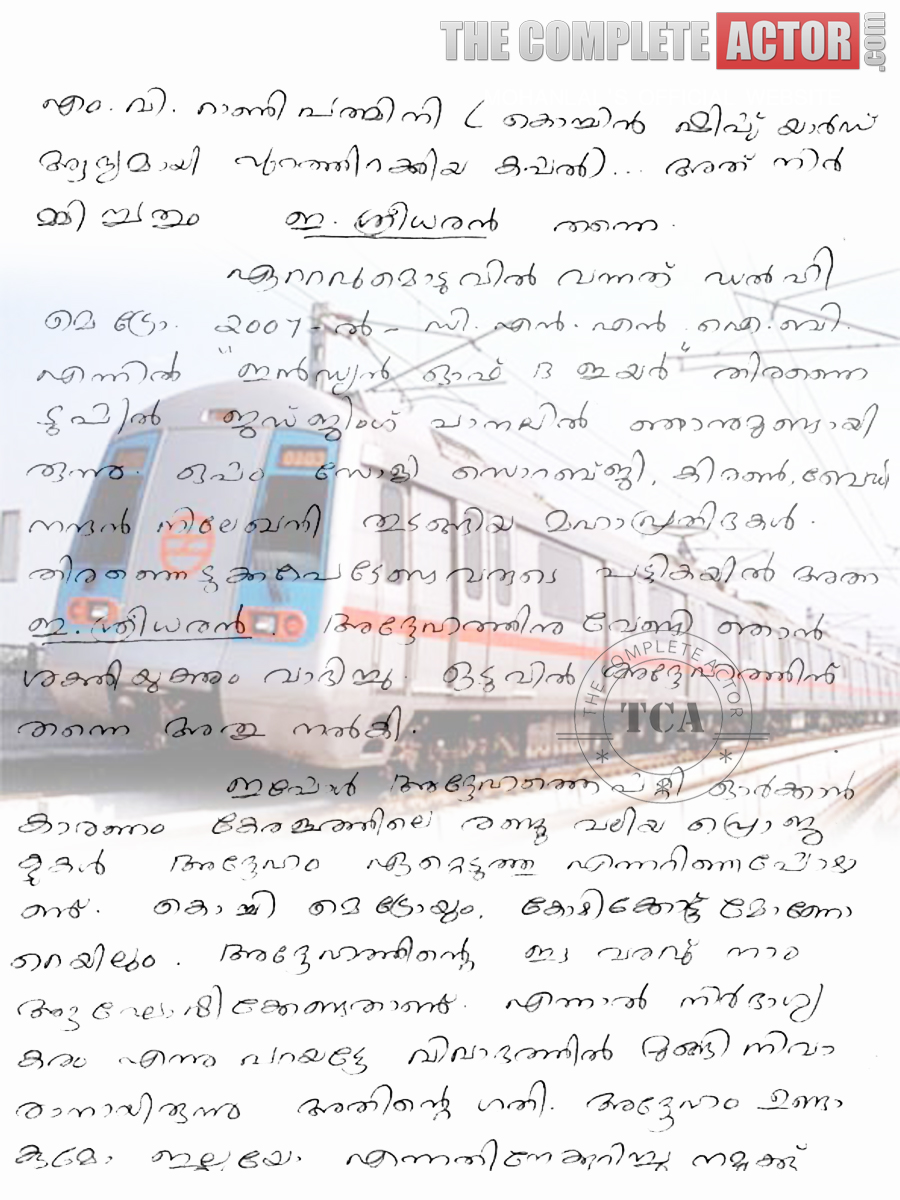 THE COMPLETE ACTOR.com
എം.വി. റാണി പത്മിനി (കൊച്ചിൻ ഷിപ്പ് യാർഡ്
ആദ്യമായി പുറത്തിറക്കിയ കപ്പൽ)... അത് നിർ
മ്മിച്ചതും ഇ.ശ്രീധരൻ തന്നെ.
ഏററവുമൊടുവിൽ വന്നത് ഡൽഹി
മെട്രോ. 2007-ൽ- സി.എൻ.എൻ ഐ.ബി.
എന്നിൽ "ഇൻഡ്യൻ ഓഫ് ദ ഇയർ" തിരഞ്ഞെ
ടുപ്പിൽ ജഡ്ജിംഗ് പാനലിൽ ഞാനുമുണ്ടായി
രുന്നു. ഒപ്പം സോളി സൊറാബ്ജി, കിരൺ ബേദി
നന്ദൻ നിലേഖനി തുടങ്ങിയ മഹാപ്രതിഭകൾ.
തിരഞ്ഞെടുക്കപ്പെടേണ്ടവരുടെ പട്ടികയിൽ അതാ
ഇ.ശ്രീധരൻ. അദ്ദേഹത്തിനു വേണ്ടി ഞാൻ
ശക്തിയുക്തം വാദിച്ചു. ഒടുവിൽ അദ്ദേഹത്തിന്
തന്നെ അതു നൽകി.
THE COMPLETE ACTOR
TCA
ഇപ്പോൾ അദ്ദേഹത്തെപ്പറ്റി ഓർക്കാൻ
കാരണം കേരളത്തിലെ രണ്ടു വലിയ പ്രൊജ
ക്ടുകൾ അദ്ദേഹം ഏറ്റെടുത്തു എന്നറിഞ്ഞപ്പോഴാ
ണ്. കൊച്ചി മെട്രോയും, കോഴിക്കോട്ട് മോണോ
റെയിലും. അദ്ദേഹത്തിന്റെ ഈ വരവ് നാം
ആഘോഷിക്കേണ്ടതാണ്. എന്നാൽ നിർഭാഗ്യ
കരം എന്നു പറയട്ടേ വിവാദത്തിൽ മുങ്ങി നിവാ
രാനായിരുന്നു അതിന്റെ ഗതി. അദ്ദേഹം ഉണ്ടാ
കുമോ ഇല്ലയോ എന്നതിനെക്കുറിച്ചു നമുക്ക്